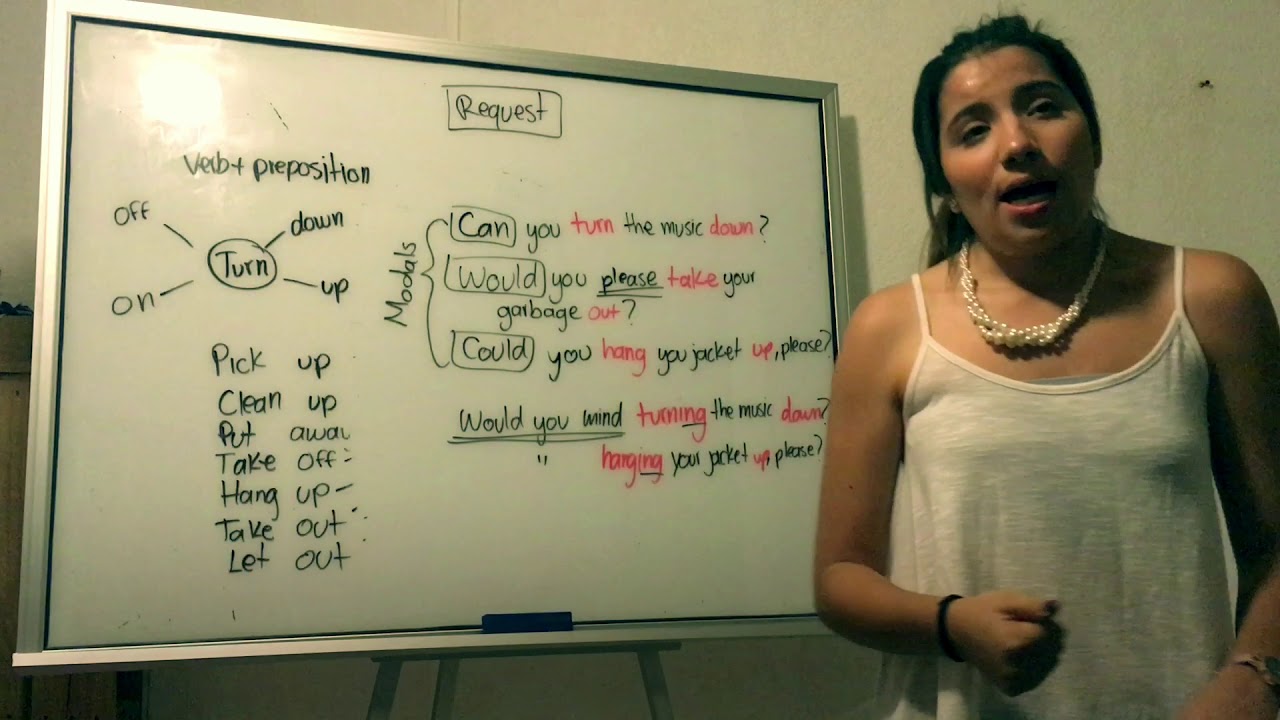 Request
Verb+ preposition
off
down
Turn
on
up
Pick up
Clean up
Put away
Take off
Hang up
Take out
Let out
Modals
Can you turn the music down?
Would you please take your
garbage out?
Could you hang you jacket up, please?
Would you mind turning the music down?
" hanging your jacket up, please?